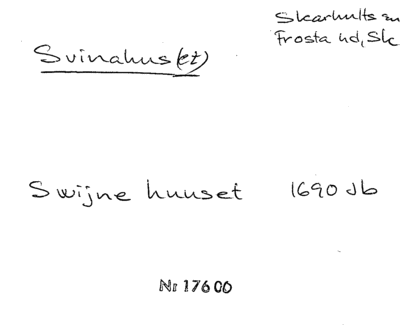 Skarhults sn
Frosta hd, Sk
Svinahus(et)
Swijne huuset 1690 Jb
Nr 17600